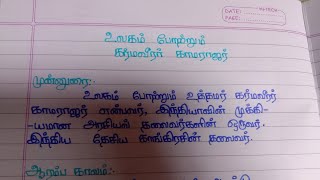 DATE:
PAGE:
உலகம் போற்றும்
கர்மவீரர் காமராஜர்
முன்னுரை:-
உலகம் போற்றும் உத்தமர் கர்மவீரர்
காமராஜர் என்பவர், இந்தியாவின் முக்கி-
-யமான அரசியல் தலைவர்களின் ஒருவர்.
இந்திய தேசிய காங்கிரசின் தலைவர்.
ஆரம்ப காலம்:-